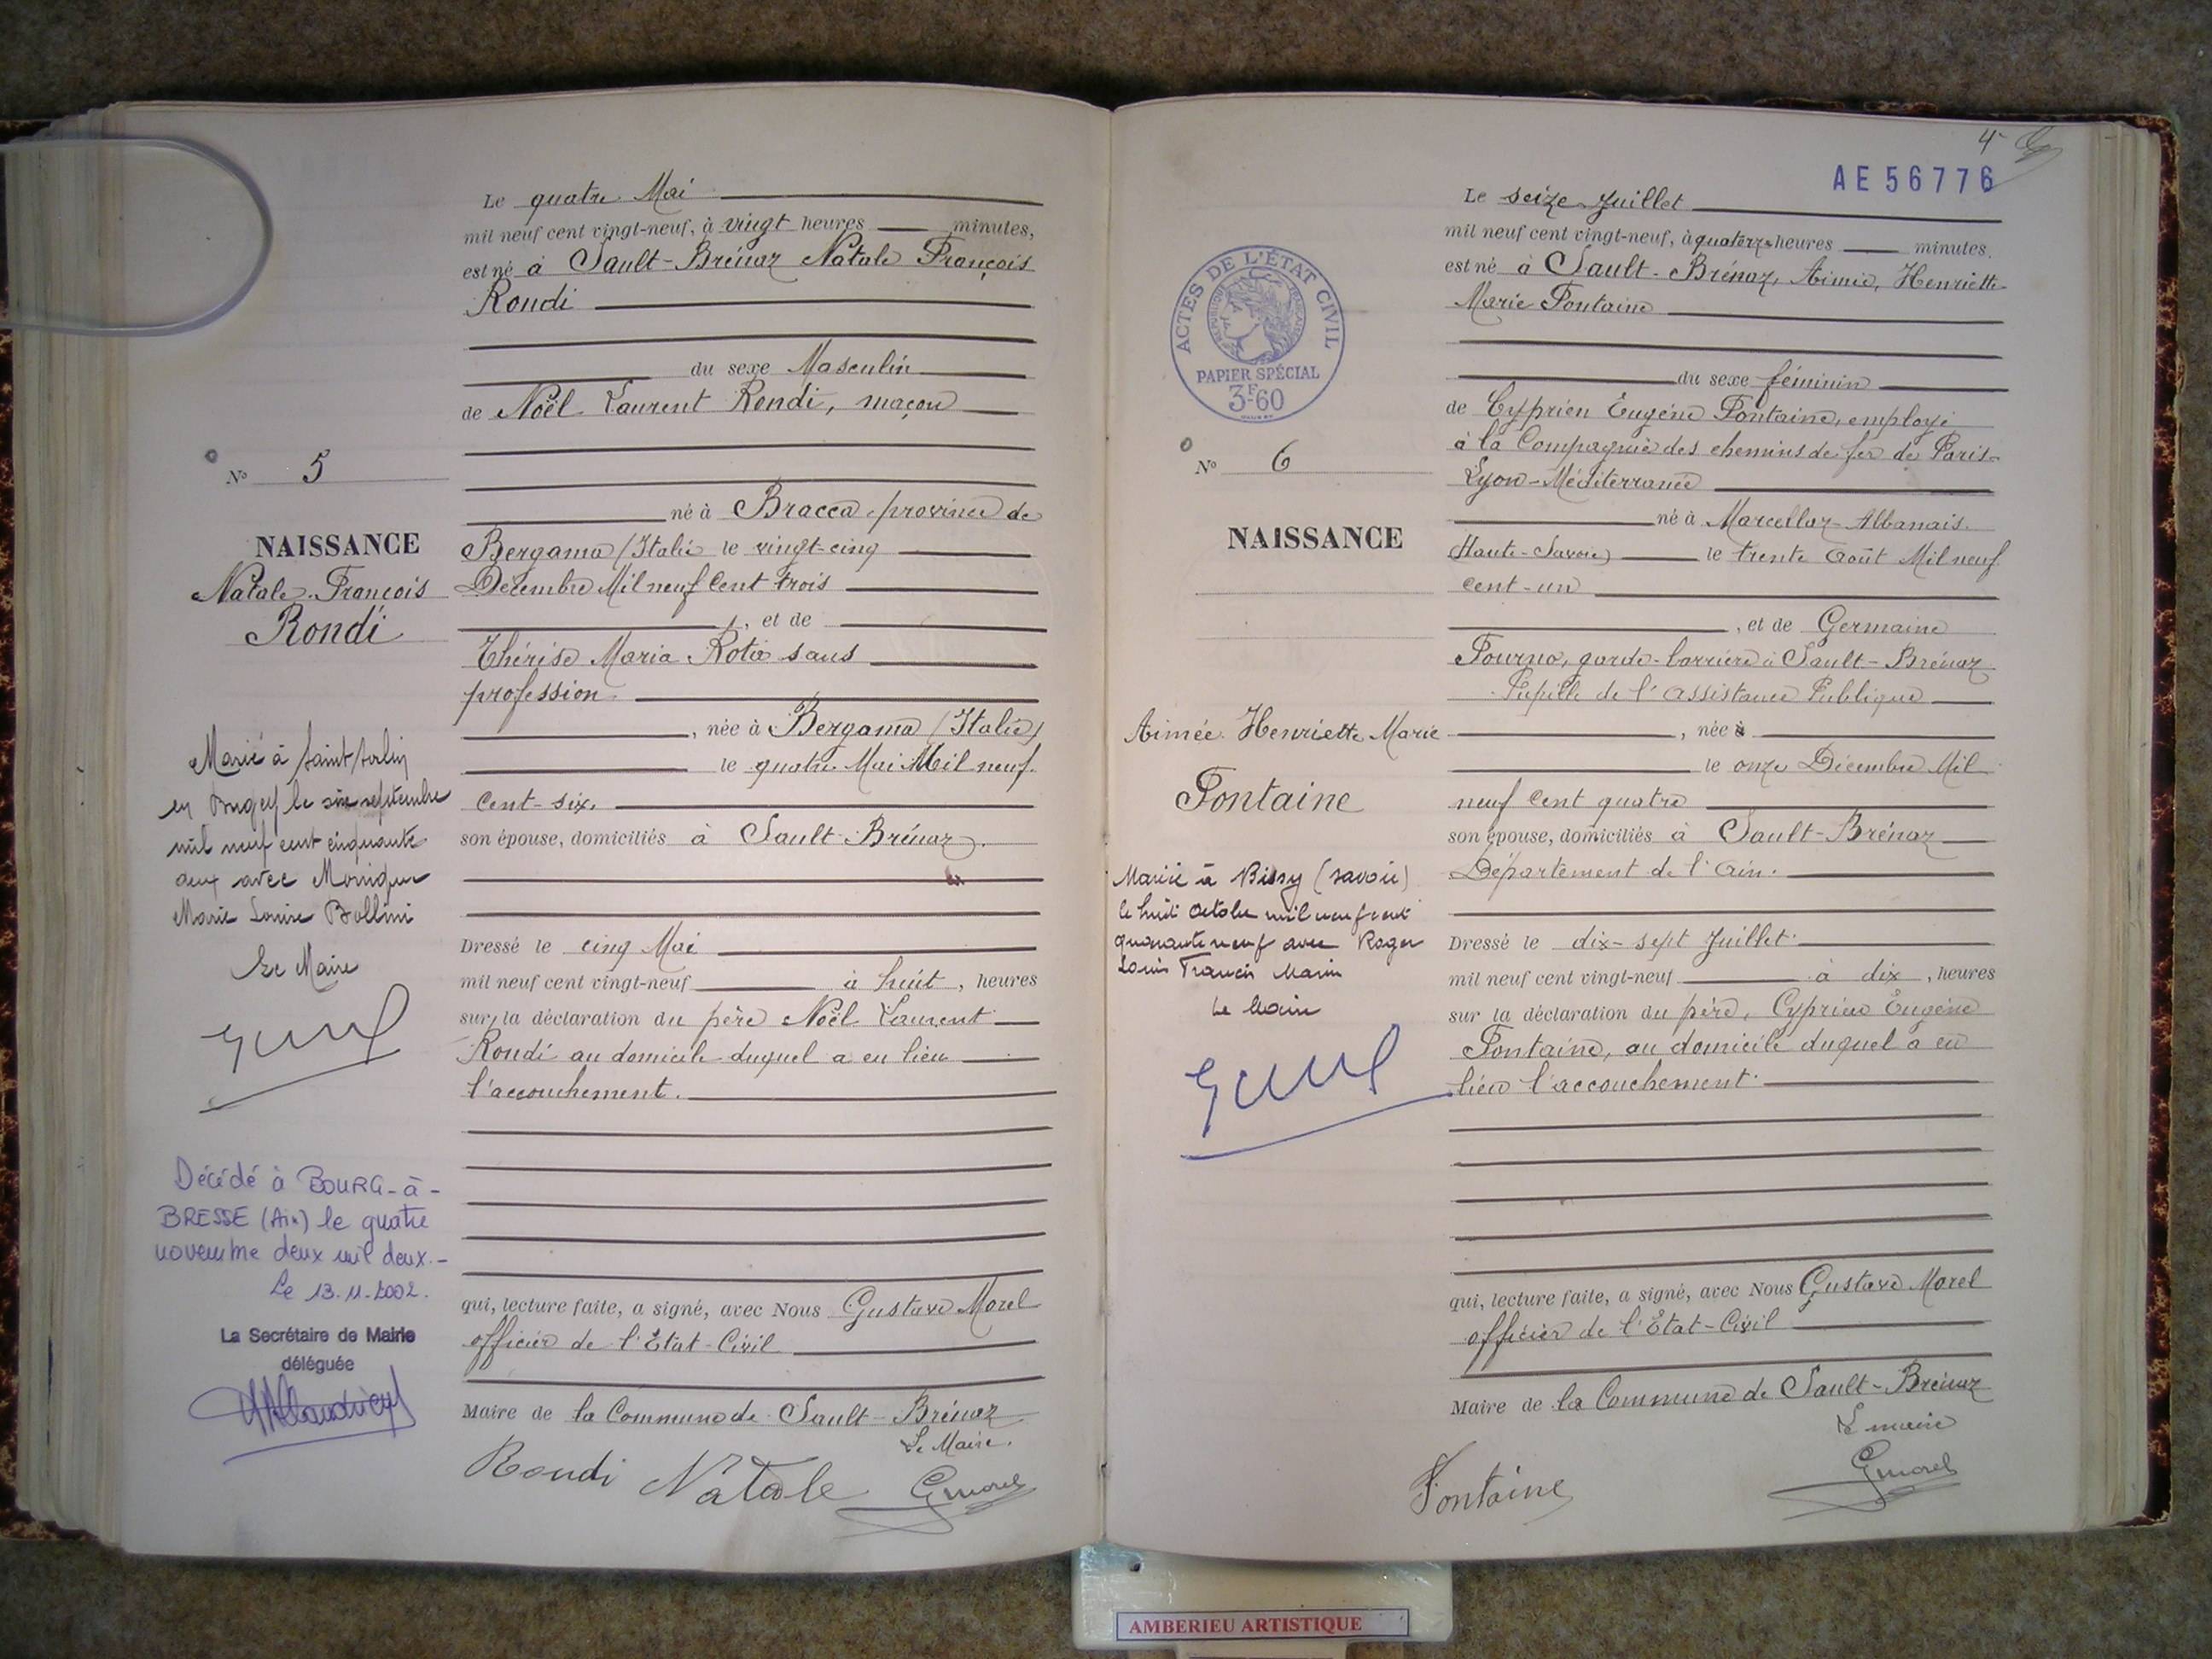 Le quatre Mai
mil neuf cent vingt-neuf, à vingt heures minutes,
est né à Sault-Brénaz Natale François
Rondi
du sexe Masculin
de Noël Laurent Rondi, maçon
né à Bracca province de
Bergama (Italie le vingt-cinq
Décembre Mil neuf Cent trois
, et de
Thérèse Maria Rota sans
profession
, née à Bergama (Italie)
le quatre Mai Mil neuf
Cent-six.
son épouse, domiciliés à Sault-Brénaz.
Dressé le cinq Mai
mil neuf cent vingt-neuf à huit, heures
sur la déclaration du père Noël Laurent
Rondi au domicile duquel a eu lieu
l'accouchement.
qui, lecture faite, a signé, avec Nous Gustave Morel
officier de l'Etat-Civil
Maire de la Commune de Sault-Brénaz
Le Maire.
Rondi Natale GMorel
N° 5
NAISSANCE
Natale François
Rondi
Marié à Saint Sorlin
en Bugey le six septembre
mil neuf cent cinquante
deux avec Monique
Marie Louise Bollini
Le Maire
Décédé à BOURG-à-
BRESSE (Ain) le quatre
novembre deux mil deux.-
Le 13.11.2002.
La Secrétaire de Mairie
déléguée
4
AE 56776
Le seize Juillet
mil neuf cent vingt-neuf, à quatorze heures minutes.
est né à Sault-Brénaz, Aimée, Henriette
Marie Fontaine
du sexe féminin
de Cyprien Eugène Fontaine, employé
à la Compagnie des chemins de fer de Paris-
Lyon-Méditerranée
né à Marcellaz-Albanais
(Haute-Savoie) le trente Août Mil neuf
cent-un
, et de Germaine
Fourno, garde-barrière à Sault-Brénaz
Pupille de l'assistance Publique
, née à
le onze Décembre Mil
neuf Cent quatre
son épouse, domiciliés à Sault-Brénaz
Département de l'Ain.
Dressé le dix-sept Juillet
mil neuf cent vingt-neuf à dix, heures
sur la déclaration du père, Cyprien Eugène
Fontaine, au domicile duquel a eu
lieu l'accouchement
qui, lecture faite, a signé, avec Nous Gustave Morel
officier de l'Etat-Civil
Maire de la Commune de Sault-Brénaz
Le maire
Fontaine GMorel
ACTES DE L'ÉTAT CIVIL
RÉPUBLIQUE FRANÇAISE
PAPIER SPÉCIAL
3F60
N° 6
NAISSANCE
Aimée Henriette Marie
Fontaine
Mariée à Bissy (Savoie)
le huit octobre mil neuf cent
quarante neuf avec Roger
Louis Francis Marin
Le Maire
AMBERIEU ARTISTIQUE